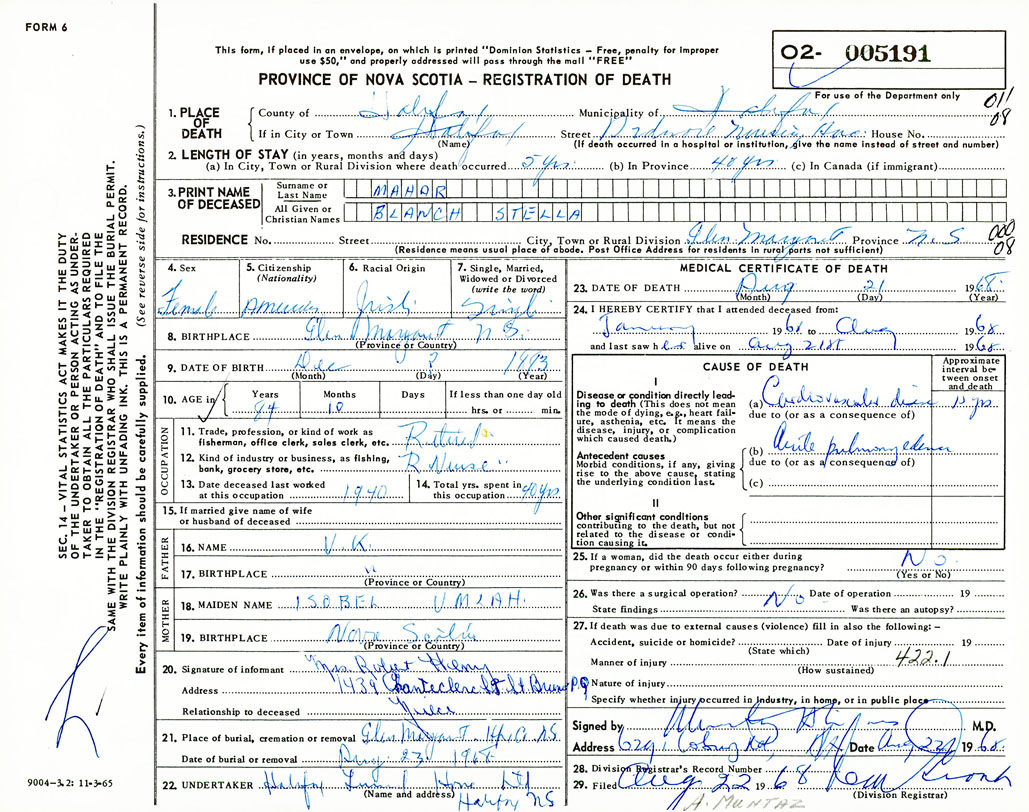 FORM 6
This form, if placed in an envelope, on which is printed "Dominion Statistics – Free, penalty for improper
use $50," and properly addressed will pass through the mail "FREE"
PROVINCE OF NOVA SCOTIA – REGISTRATION OF DEATH
02- 005191
For use of the Department only
011
08
1. PLACE OF DEATH
County of Halifax Municipality of Halifax
If in City or Town Halifax Street House No.
(Name) (If death occurred in a hospital or institution, give the name instead of street and number)
2. LENGTH OF STAY (in years, months and days)
(a) In City, Town or Rural Division where death occurred 5 yrs. (b) In Province 40 yrs (c) In Canada (if immigrant)
3. PRINT NAME OF DECEASED
Surname or Last Name MAHAR
All Given or Christian Names BLANCH STELLA
RESIDENCE No. Street City, Town or Rural Division Glen Margaret Province N.S
(Residence means usual place of abode. Post Office Address for residents in rural parts not sufficient)
000
08
4. Sex Female
5. Citizenship (Nationality) American
6. Racial Origin Irish
7. Single, Married, Widowed or Divorced (write the word) Single
8. BIRTHPLACE Glen Margaret N S.
(Province or Country)
9. DATE OF BIRTH Dec ?
(Month) (Day) (Year)
10. AGE in Years 84 Months 10 Days If less than one day old hrs. or min.
OCCUPATION
11. Trade, profession, or kind of work as fisherman, office clerk, sales clerk, etc. Retired
12. Kind of industry or business, as fishing, bank, grocery store, etc. R Nurse
13. Date deceased last worked at this occupation 1940
14. Total yrs. spent in this occupation 40 yrs
15. If married give name of wife or husband of deceased
FATHER
16. NAME U.K.
17. BIRTHPLACE "
(Province or Country)
MOTHER
18. MAIDEN NAME ISOBEL UMLAH.
19. BIRTHPLACE Nova Scotia
(Province or Country)
20. Signature of informant Mrs. Robert Henry
Address 1439 Chanteclerc St St. Bruno P.Q
Relationship to deceased Niece
21. Place of burial, cremation or removal Glen Margaret Hfx. Co. NS
Date of burial or removal Aug. 23. 1968
22. UNDERTAKER Halifax Funeral Home Ltd
(Name and address) Halifax NS
MEDICAL CERTIFICATE OF DEATH
23. DATE OF DEATH Aug 21 1968.
(Month) (Day) (Year)
24. I HEREBY CERTIFY that I attended deceased from:
January 1961 to Aug 1968
and last saw her alive on Aug 21st 1968
CAUSE OF DEATH
Approximate interval between onset and death
I
Disease or condition directly leading to death (This does not mean the mode of dying, e.g., heart failure, asthenia, etc. It means the disease, injury, or complication which caused death.)
(a) Cardiovascular disease yrs
due to (or as a consequence of)
Antecedent causes
Morbid conditions, if any, giving rise to the above cause, stating the underlying condition last.
(b) Acute pulmonary edema
due to (or as a consequence of)
(c)
II
Other significant conditions contributing to the death, but not related to the disease or condition causing it.
25. If a woman, did the death occur either during pregnancy or within 90 days following pregnancy? No.
(Yes or No)
26. Was there a surgical operation? No Date of operation 19
State findings Was there an autopsy?
27. If death was due to external causes (violence) fill in also the following:–
Accident, suicide or homicide? Date of injury 19
(State which)
Manner of injury 422.1
(How sustained)
Nature of injury
Specify whether injury occurred in Industry, in home, or in public place
Signed by M.D.
Address 6291 Coburg Rd, Hfx Date Aug 22 1968.
28. Division Registrar's Record Number
29. Filed Aug 22 1968
(Division Registrar)
A. MUNTAZ
SEC. 14 – VITAL STATISTICS ACT MAKES IT THE DUTY
OF THE UNDERTAKER OR PERSON ACTING AS UNDER-
TAKER TO OBTAIN ALL THE PARTICULARS REQUIRED
IN THE "REGISTRATION OF DEATH" AND TO FILE THE
SAME WITH THE DIVISION REGISTRAR WHO SHALL ISSUE THE BURIAL PERMIT.
WRITE PLAINLY WITH UNFADING INK. THIS IS A PERMANENT RECORD.
Every item of information should be carefully supplied. (See reverse side for instructions.)
9004-3.2: 11-3-65